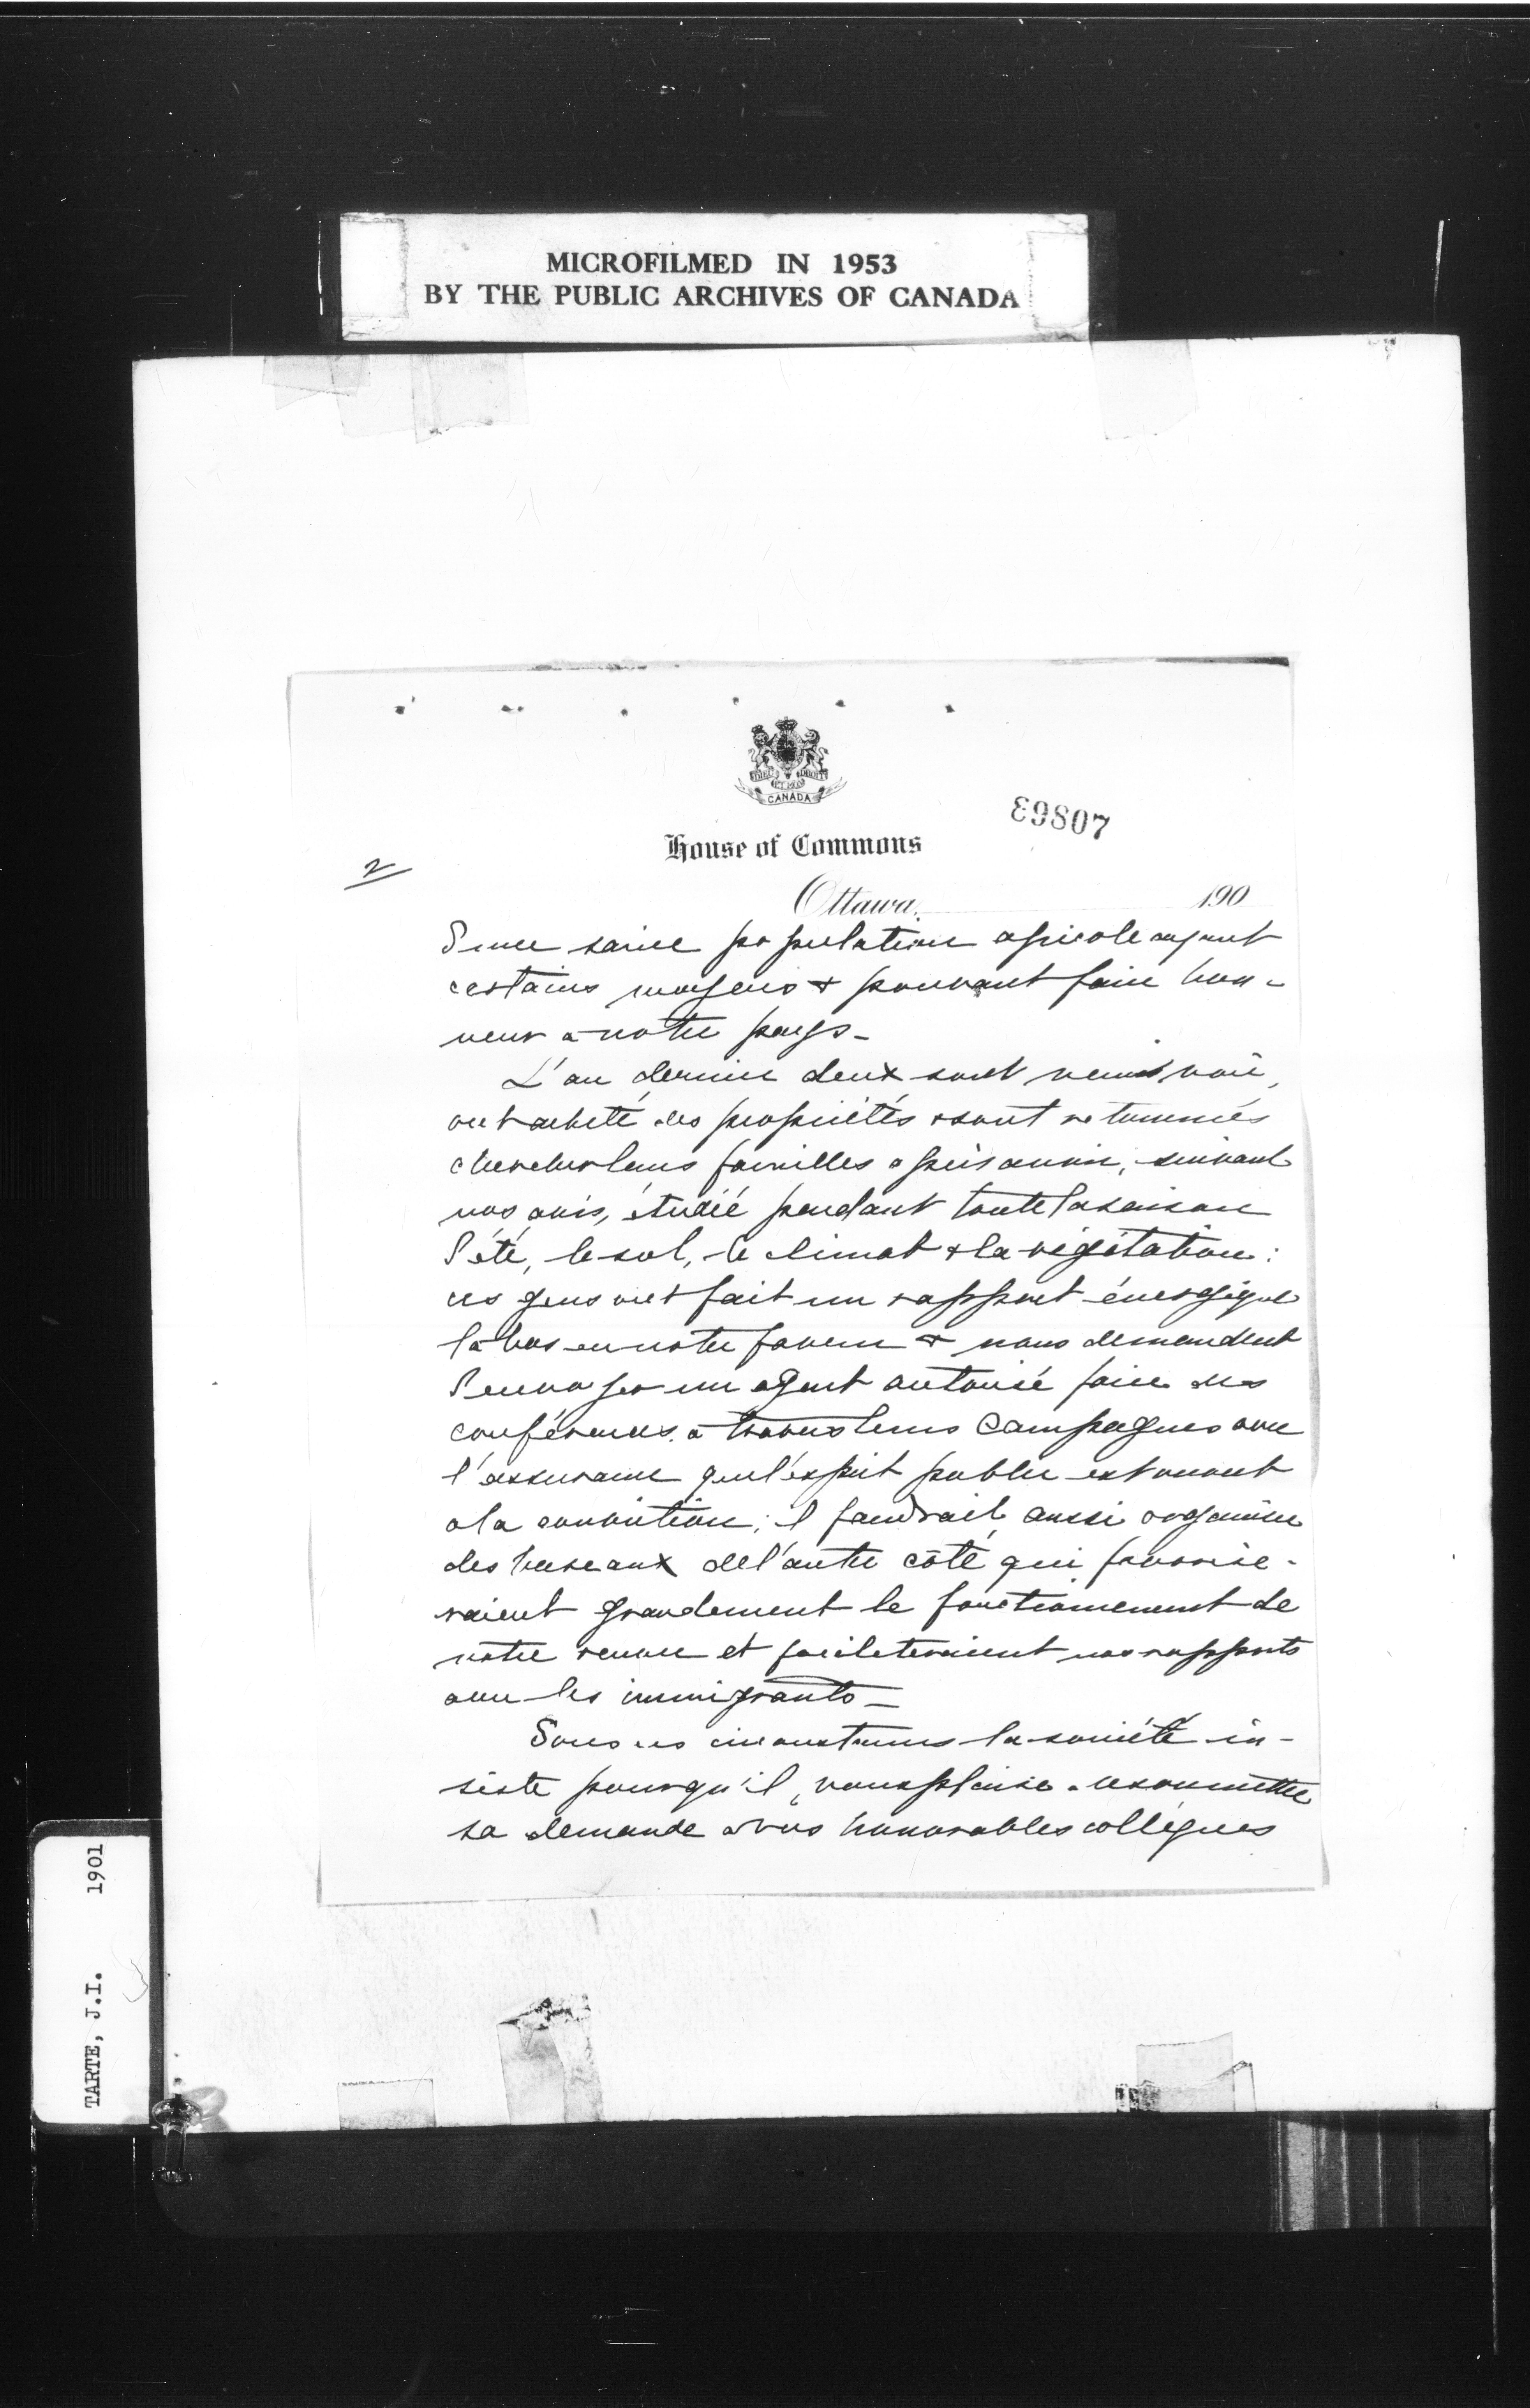 MICROFILMED IN 1953
BY THE PUBLIC ARCHIVES OF CANADA
DIEU ET MON DROIT
CANADA
89807
House of Commons
2
Ottawa, 190
d'une saine population agricole ayant
certains moyens & pouvant faire hon-
neur a notre pays -
L'an dernier deux sont venus voir,
ont acheté des propriétés & sont retournés
chercher leurs familles après avoir, suivant
nos avis, étudié pendant toute la saison
d'été, le sol, le climat & la végétation :
ces gens ont fait un rapport énergique
là bas en notre faveur & nous demandent
d'envoyer un agent autorisé faire des
conférences à travers leurs campagnes avec
l'assurance que l'esprit public est ouvert
a la conviction ; il faudrait aussi organiser
des bureaux de l'autre côté qui favorise-
raient grandement le fonctionnement de
notre et faciliteraient nos rapports
avec les immigrants -
Sous ces circonstances la société in-
siste pour qu'il vous plaise soumettre
sa demande a vos honorables collègues
TARTE, J.I. 1901